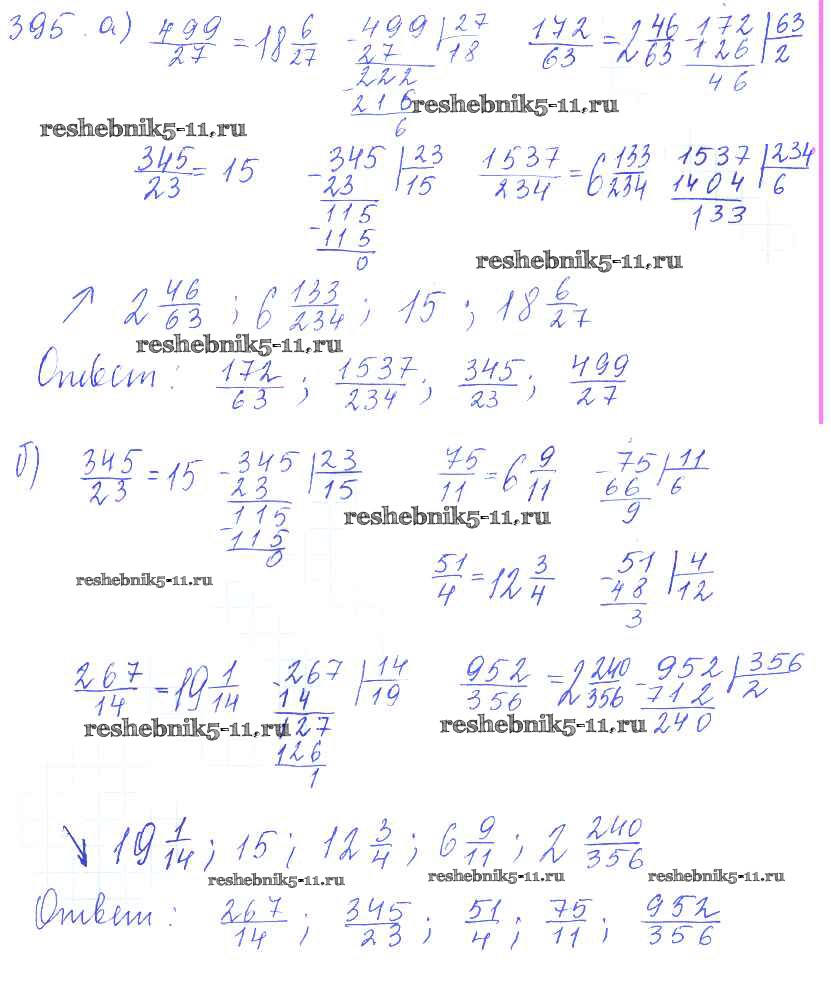 395. а) 499/27 = 18 6/27   - 499 | 27   172/63 = 2 46/63   - 172 | 63
27   18   126   2
- 222   46
216
6
reshebnik5-11.ru   reshebnik5-11.ru
345/23 = 15   - 345 | 23   1537/234 = 6 133/234   1537 | 234
23   15   1404   6
- 115   133
115
0
reshebnik5-11.ru
↗ 2 46/63 ; 6 133/234 ; 15 ; 18 6/27
reshebnik5-11.ru
Ответ: 172/63 ; 1537/234 ; 345/23 ; 499/27
б) 345/23 = 15   - 345 | 23   75/11 = 6 9/11   - 75 | 11
23   15   66   6
- 115   9
115
0
reshebnik5-11.ru
51/4 = 12 3/4   - 51 | 4
48   12
3
reshebnik5-11.ru
267/14 = 19 1/14   - 267 | 14   952/356 = 2 240/356   - 952 | 356
14   19   712   2
127   240
126
1
reshebnik5-11.ru   reshebnik5-11.ru
↘ 19 1/14 ; 15 ; 12 3/4 ; 6 9/11 ; 2 240/356
reshebnik5-11.ru   reshebnik5-11.ru   reshebnik5-11.ru
Ответ: 267/14 ; 345/23 ; 51/4 ; 75/11 ; 952/356